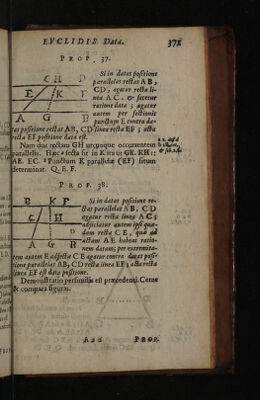 EVCLIDIS Data. 371
PROP. 37.
C H D
E K F
A G B
Si in datas positione
parallelas rectas AB,
CD, agatur recta li-
nea AC, & secetur
ratione data; agatur
autem per sectionis
punctum E contra da-
tas positione rectas AB, CD linea recta EF; acta
recta EF positione data est.
Nam duc rectam GH utrunque occurrentem
parallelis. Hæc secta sit in K ita ut GK. KH::
AE. EC. Punctum K parallelæ (EF) situm
determinat. Q. E. F.
PROP. 38.
E K F
C H D
A G B
Si in datas positione re-
ctas parallelas AB, CD
agatur recta linea AC;
adjiciatur autem ipsi quæ-
dam recta CE, quæ ad
actam AE habeat ratio-
nem datam; per extremita-
tem autem E adjectæ CE agatur contra datas posi-
tione parallelas AB, CD recta linea EF; acta recta
linea EF est data positione.
Demonstratio persimilis est præcedenti. Cerne
& compara figuras.
Aaa PROP.